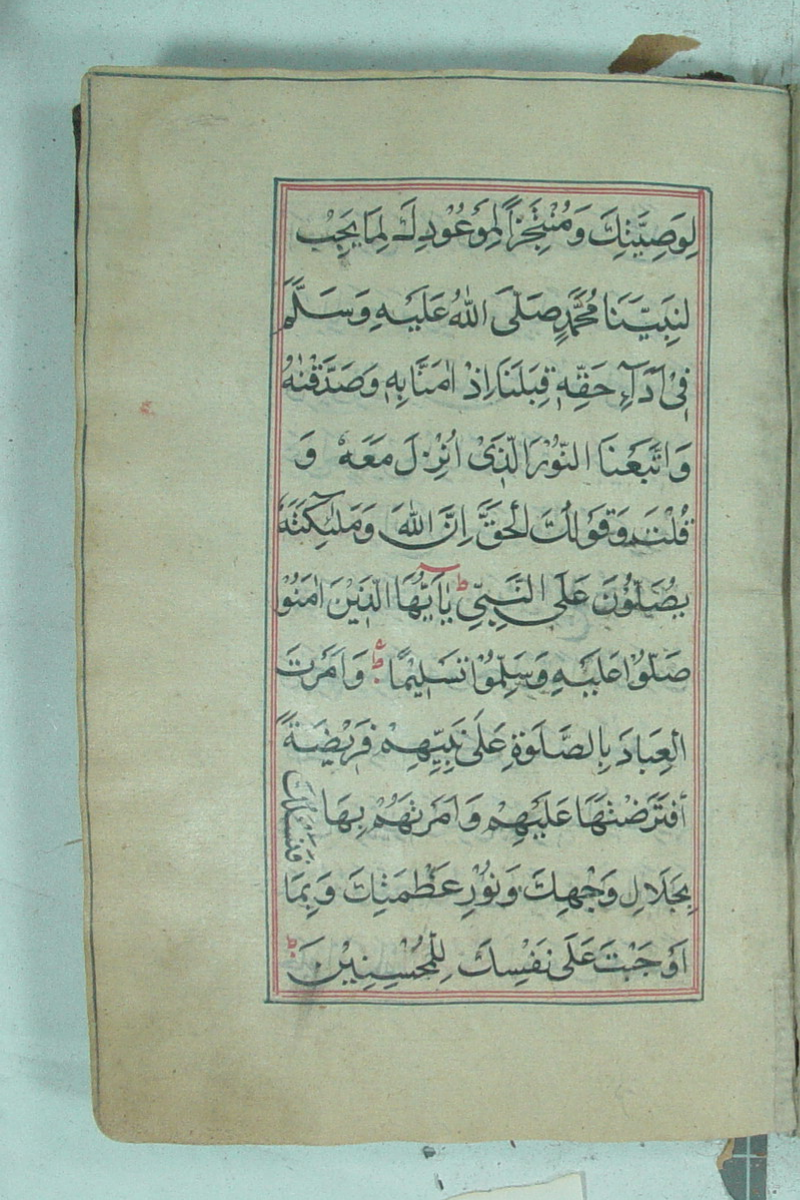 لِوَصِيَّتِكَ وَمُنْتَجِزًا لِمَوْعُودِكَ لِمَا يَجِبُ
لِنَبِيِّنَا مُحَمَّدٍ صَلَّى اللهُ عَلَيْهِ وَسَلَّمَ
فِيْ اَدَآءِ حَقِّهٖ قِبَلَنَا اِذْ اٰمَنَّا بِهٖ وَصَدَّقْنٰهُ
وَاتَّبَعْنَا النُّوْرَ الَّذِيْ اُنْزِلَ مَعَهٗ وَ
قُلْتَ وَقَوْلُكَ الْحَقُّ اِنَّ اللهَ وَمَلٰٓئِكَتَهٗ
يُصَلُّوْنَ عَلَى النَّبِيِّ ط يٰٓاَيُّهَا الَّذِيْنَ اٰمَنُوْا
صَلُّوْا عَلَيْهِ وَسَلِّمُوْا تَسْلِيْمًا ط وَاَمَرْتَ
الْعِبَادَ بِالصَّلٰوةِ عَلٰى نَبِيِّهِمْ فَرِيْضَةً
اِفْتَرَضْتَهَا عَلَيْهِمْ وَاَمَرْتَهُمْ بِهَا فَنَسْئَلُكَ
بِجَلَالِ وَجْهِكَ وَنُوْرِ عَظَمَتِكَ وَبِمَا
اَوْجَبْتَ عَلٰى نَفْسِكَ لِلْمُحْسِنِيْنَ ط